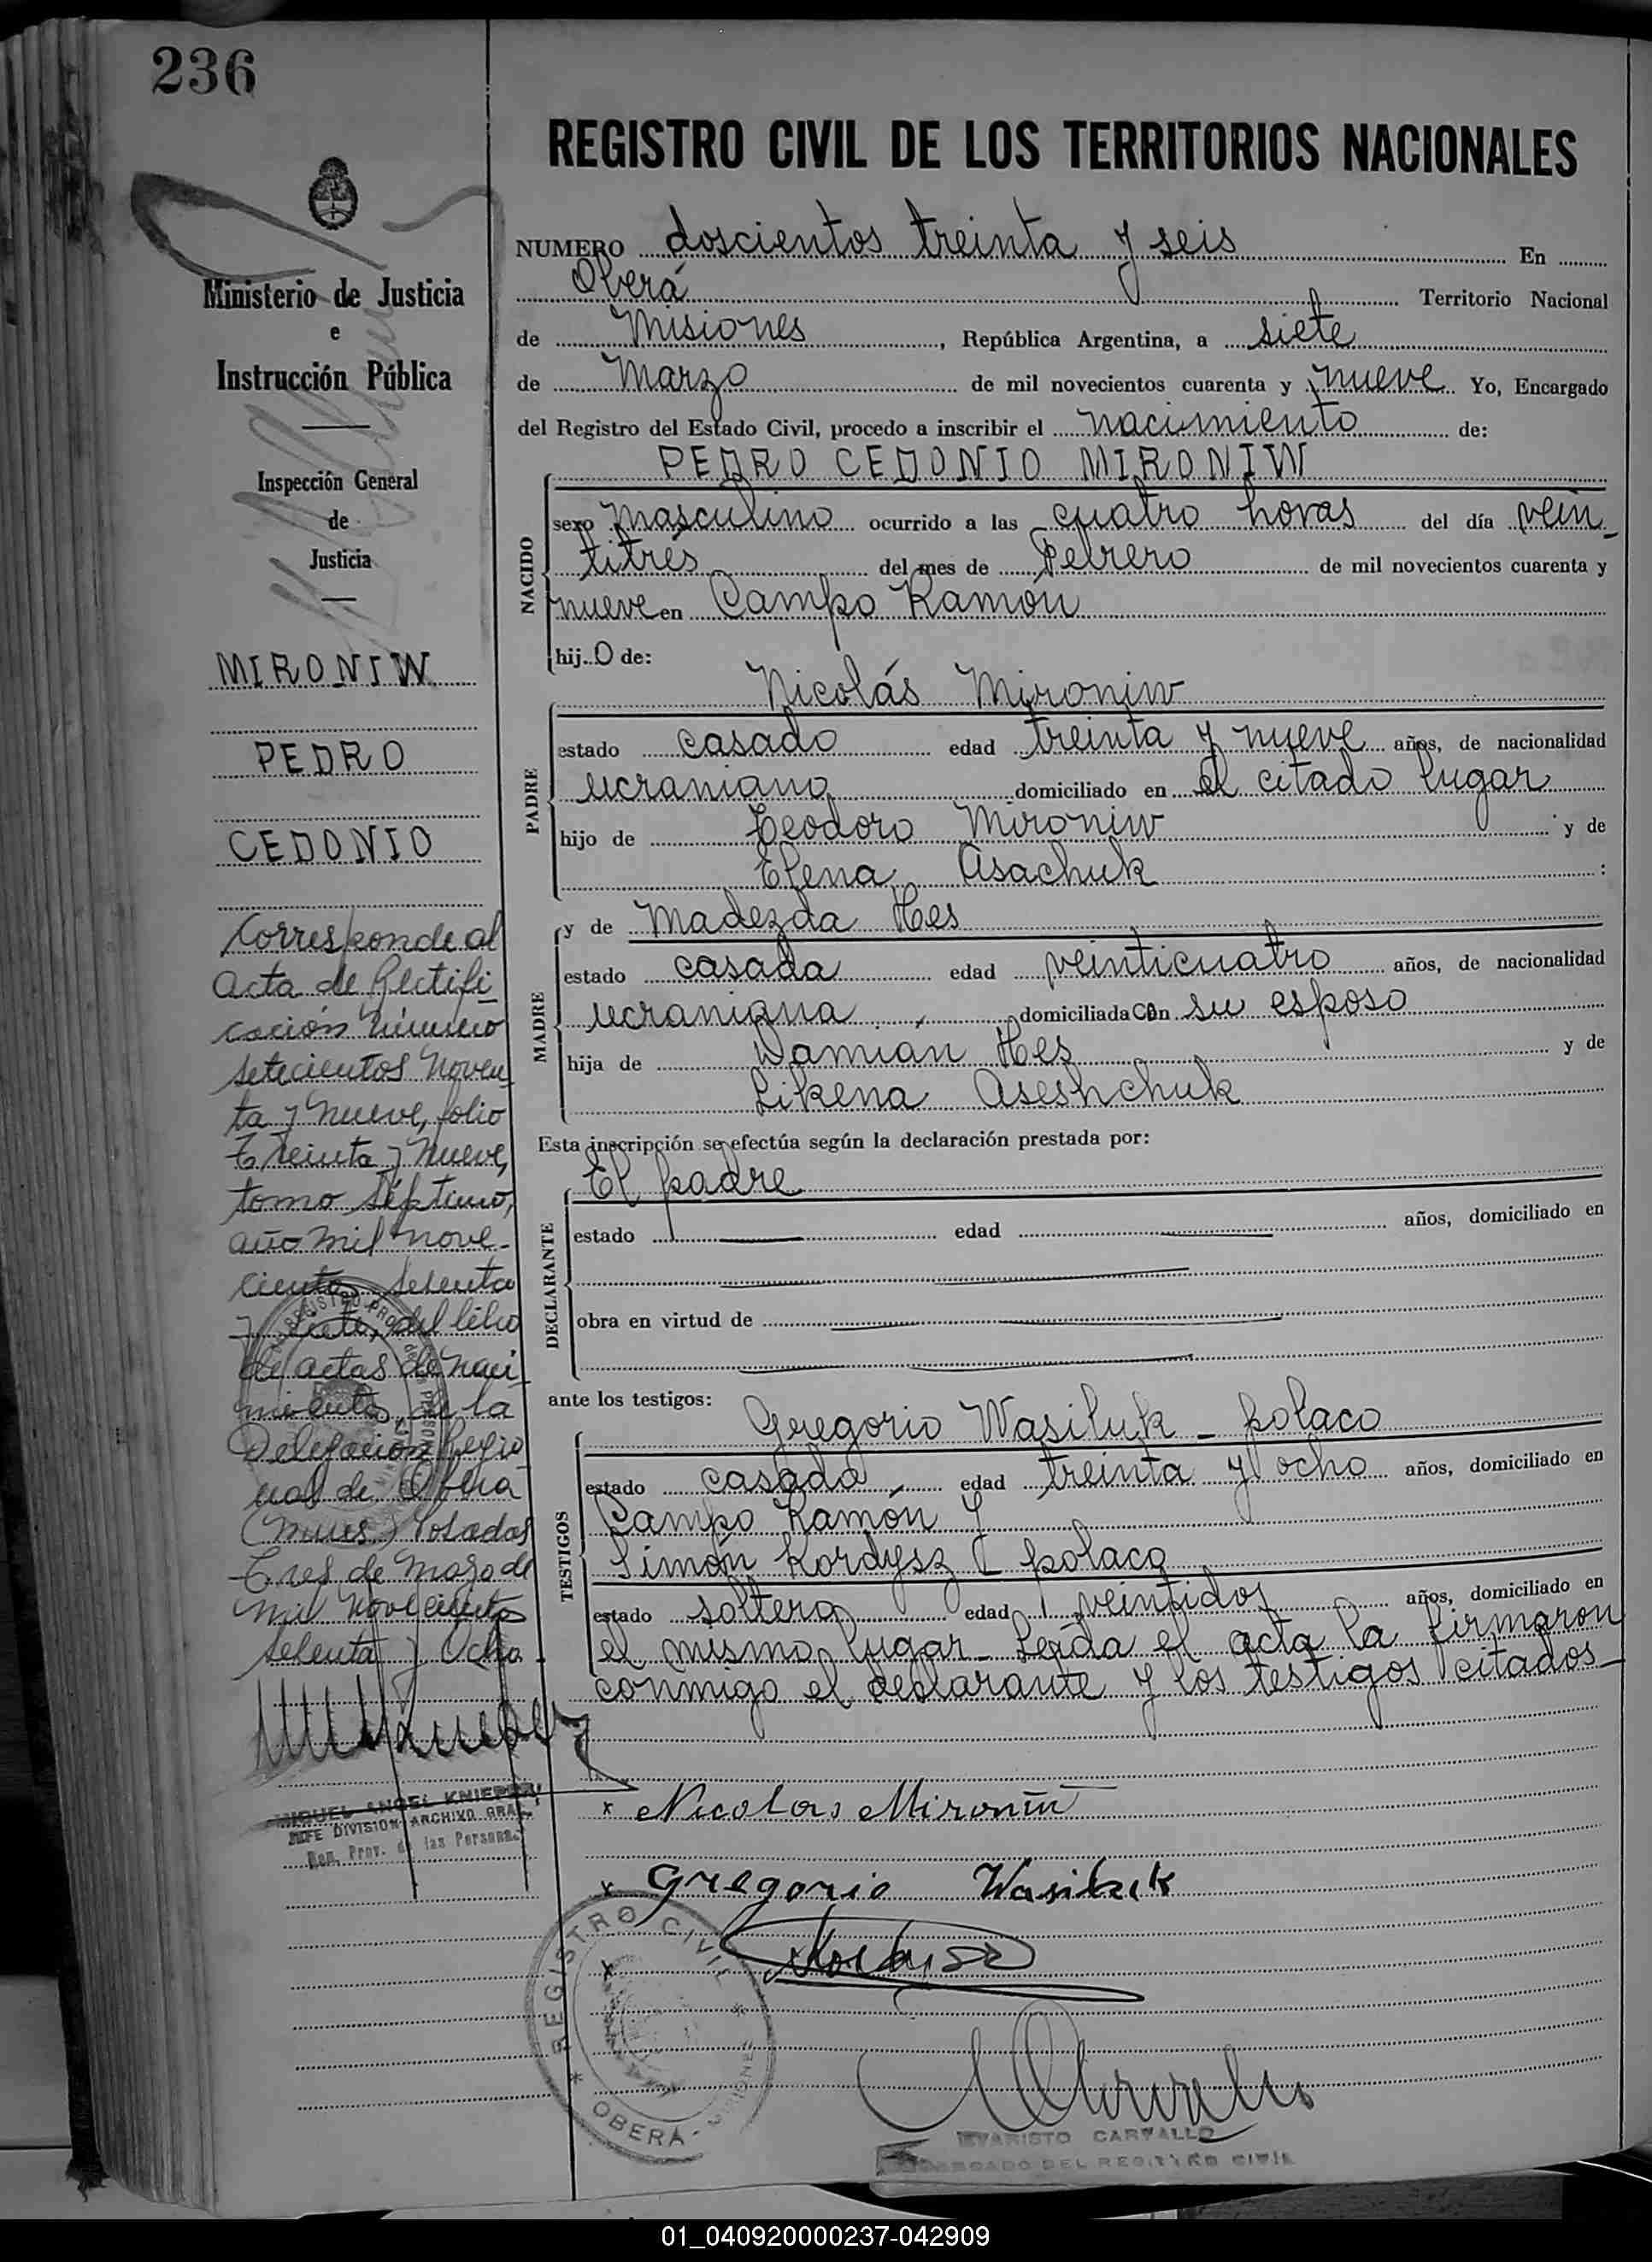 236
REGISTRO CIVIL DE LOS TERRITORIOS NACIONALES
NUMERO doscientos treinta y seis En
Oberá Territorio Nacional
de Misiones, República Argentina, a siete
de Marzo de mil novecientos cuarenta y nueve Yo, Encargado
del Registro del Estado Civil, procedo a inscribir el nacimiento de:
PEDRO CEDONIO MIRONIW
NACIDO
sexo masculino ocurrido a las cuatro horas del día vein
titrés del mes de Febrero de mil novecientos cuarenta y
nueve en Campo Ramón
hijo de:
Nicolás Mironiw
PADRE
estado casado edad treinta y nueve años, de nacionalidad
ucraniano domiciliado en el citado lugar
hijo de Teodoro Mironiw y de
Elena Asachuk :
MADRE
y de Madezda Hes
estado casada edad veinticuatro años, de nacionalidad
ucraniana domiciliada con su esposo
hija de Damian Hes y de
Likena Aseshchuk
Esta inscripción se efectúa según la declaración prestada por:
El padre
DECLARANTE
estado edad años, domiciliado en
obra en virtud de
ante los testigos:
Gregorio Wasiluk - polaco
TESTIGOS
estado casado edad treinta y ocho años, domiciliado en
Campo Ramón y
Simón Kordysz - polaco
estado soltero edad veintidos años, domiciliado en
el mismo lugar - Leída el acta la firmaron
conmigo el declarante y los testigos citados -
x Nicolas Mironiw
x Gregorio Wasiluk
x
REGISTRO CIVIL
OBERÁ - MISIONES
EVARISTO CARVALLO
ENCARGADO DEL REGISTRO CIVIL
Ministerio de Justicia
e
Instrucción Pública
Inspección General
de
Justicia
MIRONIW
PEDRO
CEDONIO
Corresponde al
acta de Rectifi
cación número
setecientos noven
ta y nueve, folio
treinta y nueve,
tomo séptimo,
año mil nove-
cientos setenta
y siete, del libro
de actas de naci
mientos, de la
Delegación Regio
nal de Oberá
(Mnes) Posadas
tres de marzo de
mil novecientos
setenta y ocho -
MIGUEL ANGEL
JEFE DIVISION ARCHIVO GRAL.
Reg. Prov. de las Personas
01_040920000237-042909